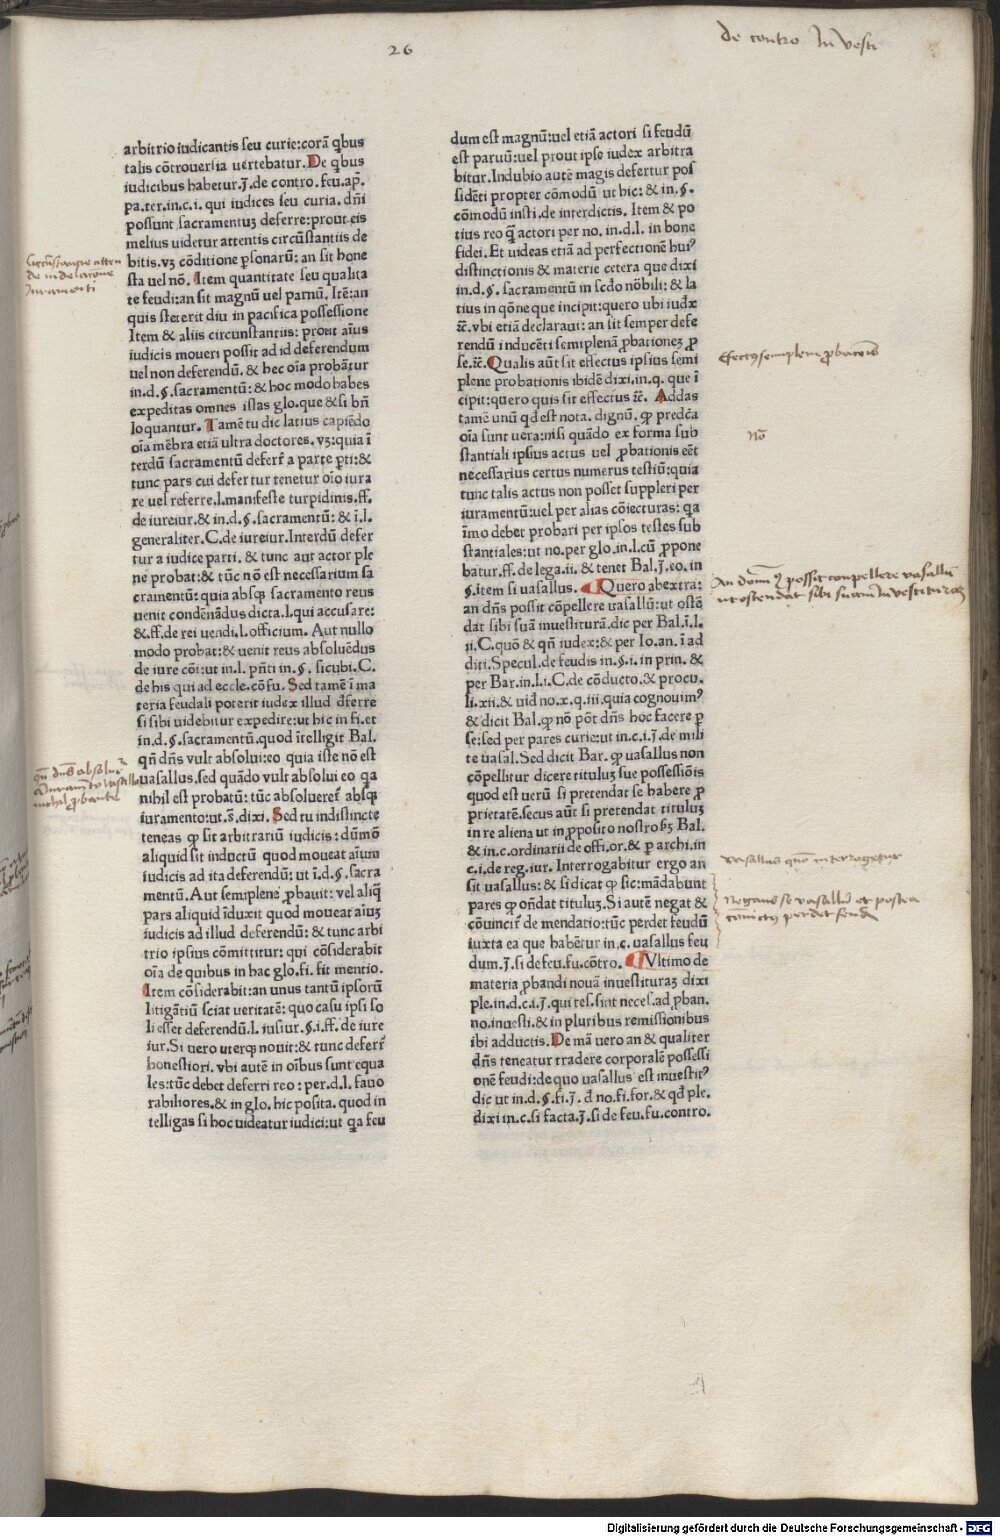 26
de contro Inuesti
arbitrio iudicantis seu curie:corā qbus
talis cōtrouersia uertebatur. De qbus
iudicibus habetur.J.de contro.feu.ap̄.
pa.ter.in.c.i. qui iudices seu curia. dn̄i
possunt sacramentuꝫ deferre:prout eis
melius uidetur attentis circūstantiis de
bitis.vꝫ cōditione ꝑsonarū: an sit hone
sta uel nō. Item quantitate seu qualita
te feudi:an sit magnū uel paruū. Itē:an
quis steterit diu in pacifica possessione
Item & aliis circunstantiis: prout aīus
iudicis moueri possit ad id deferendum
uel non deferendū. & hec oīa probātur
in.d.§.sacramentū: & hoc modo habes
expeditas omnes istas glo.que & si bn̄
loquantur. Tamē tu dic latius capiēdo
oīa mēbra etiā ultra doctores. vꝫ:quia ī
terdū sacramentū deferr̄ a parte ꝑti:&
tunc pars cui defertur tenetur oīo iura
re uel referre.l.manifeste turpidinis.ff.
de iureiur.& in.d.§.sacramentū: & ī.l.
generaliter.C.de iureiur.Interdū defer
tur a iudice parti. & tunc aut actor ple
ne probat:& tūc nō est necessarium sa
cramentū: quia absqꝫ sacramento reus
uenit condēnādus dicta.l.qui accusare:
&.ff.de rei uendi.l.officium. Aut nullo
modo probat:& uenit reus absoluēdus
de iure cōi:ut in.l. pn̄ti in.§. sicubi.C.
de his qui ad eccle.cōfu. Sed tamē ī ma
teria feudali poterit iudex illud d̄ferre
si sibi uidebitur expedire:ut hic in fi.et
in.d.§.sacramentū.quod ītelligit Bal.
qn̄ dn̄s vult absolui:eo quia iste nō est
uasallus.sed quādo vult absolui eo qa
nihil est probatū: tūc absolueret̄ absqꝫ
iuramento:ut.s̄.dixi. Sed tu indistincte
teneas ꝙ sit arbitrariū iudicis: dūmō
aliquid sit inductū quod moueat aīum
iudicis ad ita deferendū: ut ī.d.§.sacra
mentū. Aut semiplene ꝓbauit: vel aliq̄
pars aliquid īduxit quod moueat aīuꝫ
iudicis ad illud deferendū: & tunc arbi
trio ipsius cōmittitur: qui cōsiderabit
oīa de quibus in hac glo.fi.fit mentio.
Item cōsiderabit:an unus tantū ipsorū
litigātiū sciat veritatē: quo casu ipsi so
li esset deferendū.l. iusiur.§.i.ff.de iure
iur.Si uero uterqꝫ nouit:& tunc deferr̄
honestiori. vbi autē in oībus sunt equa
les:tūc debet deferri reo: per.d.l. fauo
rabiliores.& in glo. hic posita. quod in
telligas si hoc uideatur iudici:ut qa feu
dum est magnū:uel etiā actori si feudū
est paruū:uel prout ipse iudex arbitra
bitur.Indubio autē magis defertur pos
sidēti propter cōmodū ut hic: & in.§.
cōmodū insti.de interdictis. Item & po
tius reo q̄ actori per no. in.d.l. in bone
fidei. Et uideas etiā ad perfectionē huiꝰ
distinctionis & materie cetera que dixi
in.d.§.sacramentū in scdo nōbili: & la
tius in qōne que incipit:quero ubi iud̄x
ꝛc̄.vbi etiā declaraui: an sit semper defe
rendū inducēti semiplenā ꝓbationeꝫ ꝑ
se.ꝛc̄. Qualis aūt sit effectus ipsius semi
plene probationis ibidē dixi.in.q. que ī
cipit:quero quis sit effectus ꝛc̄. Addas
tamē unū qd̄ est nota. dignū. ꝙ predc̄a
oīa sunt uera:nisi quādo ex forma sub
stantiali ipsius actus uel ꝓbationis eēt
necessarius certus numerus testiū:quia
tunc talis actus non posset suppleri per
iuramentū:uel per alias cōiecturas: qa
īmo debet probari per ipsos testes sub
stantiales:ut no.per glo.in.l.cū ꝓpone
batur.ff.de lega.ii. & tenet Bal.J.eo. in
§.item si uasallus. Quero abextra:
an dn̄s possit cōpellere uasallū:ut ostē
dat sibi suā inuestiturā.dic per Bal.ī.l.
ii.C.quō & qn̄ iudex:& per Io.an. ī ad
diti.Specul.de feudis in.§.i.in prin. &
per Bar.in.l.i.C.de cōducto.& procu.
li.xii.& uid̄ no.x.q.iii.quia cognouimꝰ
& dicit Bal.ꝙ nō pōt dn̄s hoc facere ꝑ
se:sed per pares curie:ut in.c.i.J.de mili
te uasal.Sed dicit Bar. ꝙ uasallus non
cōpellitur dicere tituluꝫ sue possessiōis
quod est uerū si pretendat se habere ꝑ
prietatē.secus aūt si pretendat tituluꝫ
in re aliena ut in ꝓposito nostro ẜꝫ Bal.
& in.c.ordinarii de offi.or.& ꝑ archi.in
c.i.de reg.iur. Interrogabitur ergo an
sit uasallus: & si dicat ꝙ sic:mādabunt
pares ꝙ on̄dat tituluꝫ.Si autē negat &
cōuincir̄ de mendatio:tūc perdet feudū
iuxta ea que habētur in.c. uasallus feu
dum.J.si de feu.fu.cōtro. Vltimo de
materia ꝓbandi nouā inuestituraꝫ dixi
ple.in.d.c.i.J.qui tes.sint neces.ad ꝓban.
no.inuesti.& in pluribus remissionibus
ibi adductis. De mā uero an & qualiter
dn̄s teneatur tradere corporalē possessi
onē feudi:de quo uasallus est inuestitꝰ
dic ut in.d.§.fi.J. d̄ no.fi.for.& qd̄ ple.
dixi in.c.si facta.J.si de feu.fu.contro.
nō
An dominꝰ possit conpellere vasallū
ut ostendat sibi suam Inuestituraꝫ
vasallus quō interrogetur
Negans se vasallū et postea
conuictꝰ perdet feudū
Digitalisierung gefördert durch die Deutsche Forschungsgemeinschaft - DFG